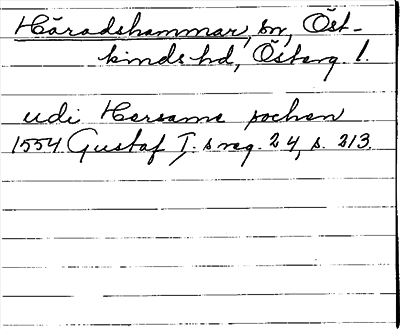 Häradshammar, sn, Öst-
kinds hd, Österg. l.
udi Harsams sochen
1554 Gustaf I:s reg. 24, s. 213.